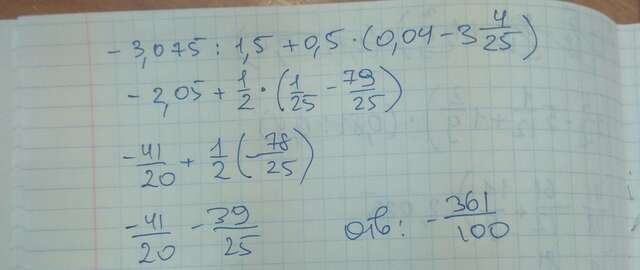 -3,075 : 1,5 + 0,5 · (0,04 - 3 4/25)
-2,05 + 1/2 · (1/25 - 79/25)
-41/20 + 1/2 (-78/25)
-41/20 - 39/25 отв: -361/100